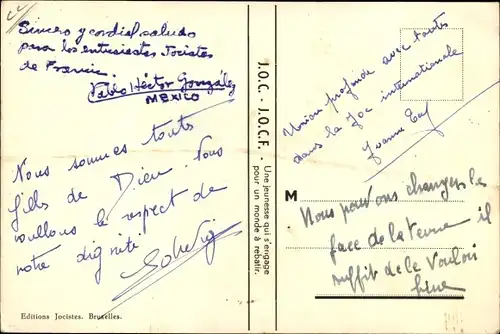 Sincero y cordial saludo
para los entusiastas Jocistas
de Francia.
Pablo Héctor González
MEXICO
Nous sommes touts
fills de Dieu. Nous
voullons le respect de
notre dignité
Editions Jocistes. Bruxelles.
J.O.C. - J.O.C.F. -
Une jeunesse qui s'engage
pour un monde à rebatir.
Union profonde avec touts
dans la Joc internationale
Yvonne
M
Nous pouvons changer la
face de la terre il
suffit de le vouloir